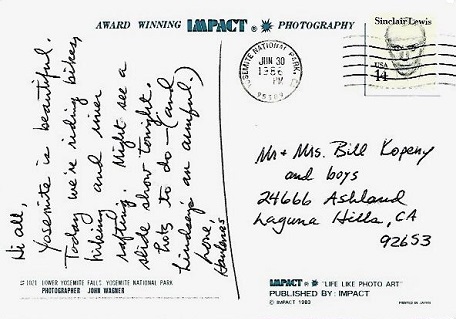 AWARD WINNING IMPACT ® PHOTOGRAPHY
Sinclair Lewis
USA
14
YOSEMITE NATIONAL PARK, CA
JUN 30
1986
PM
95389
Hi all,
Yosemite is beautiful.
Today we're riding bikes,
hiking and river
rafting. Might see a
slide show tonight.
Lots to do — (and
Lindsay's an armful.)
Love,
Barbara
Mr + Mrs. Bill Kopeny
and boys
24666 Ashland
Laguna Hills, CA
92653
1021 LOWER YOSEMITE FALLS YOSEMITE NATIONAL PARK
PHOTOGRAPHER JOHN WAGNER
IMPACT ® "LIFE LIKE PHOTO ART"
PUBLISHED BY: IMPACT
© IMPACT 1983
PRINTED IN JAPAN